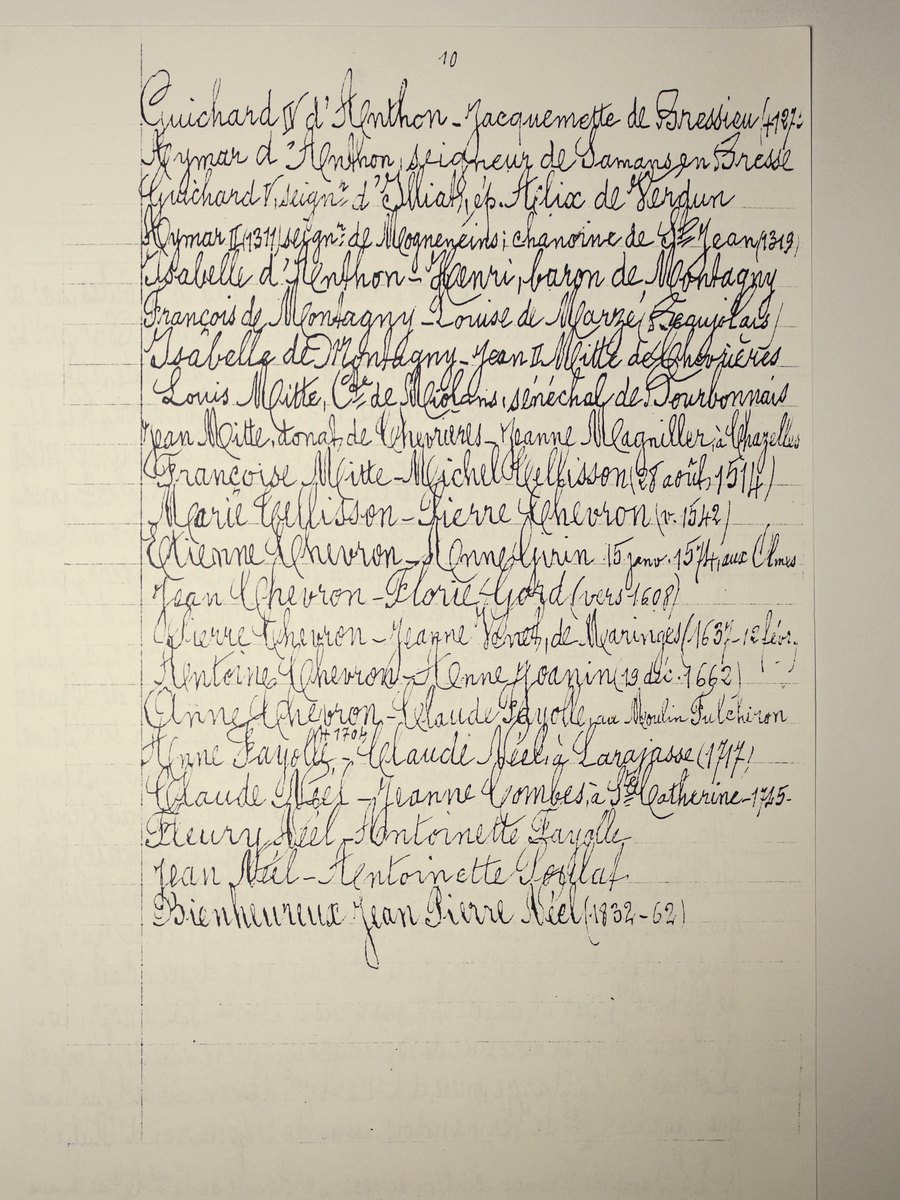 10
Guichard IV d'Anthon - Jacquemette de Bressieu (+127
Aymar d'Anthon, seigneur de Samans en Bresse
Guichard V, seignr d'Illiat, ép. Alix de Verdun
Aymar II (1311) seignr de Mogneneins; chanoine de St Jean (1319)
Isabelle d'Anthon - Henri, baron de Montagny
François de Montagny - Louise de Marzé (Beaujolais)
Isabelle de Montagny - Jean II Mitte de Chevrières
Louis Mitte, Cte de Miolans, sénéchal de Bourbonnais
Jean Mitte, donat de Chevrières - Jeanne Magniller, à Chazelles
Françoise Mitte - Michel Tellisson (28 août 1514)
Marie Tellisson - Pierre Chevron (v. 1542)
Etienne Chevron - Anne Girin 15 janv. 1574, aux Olmes
Jean Chevron - Florie Gord (vers 1608)
Pierre Chevron - Jeanne Venet, de Maringes (1637 - 12 févr.)
Antoine Chevron - Anne Joanin (19 déc. 1662)
Anne Chevron - Claude Fayolle, au Moulin Fulchiron
Anne Fayolle + 1704 - Claude Néel, à Larajasse (1717)
Claude Néel - Jeanne Combes, à Ste Catherine - 1745 -
Fleury Néel - Antoinette Fayolle
Jean Néel - Antoinette
Bienheureux Jean Pierre Néel (1832-62)